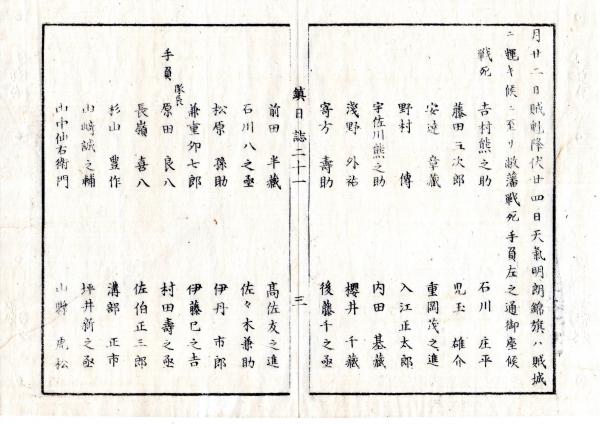 月廿二日賊魁降伏廿四日天氣明朗錦旗ハ賊城
ニ飜キ候ニ至リ敝藩戰死手員左之通御座候
戰死 吉村熊之助 石川庄平
藤田三次郎 児玉雄介
安達章藏 重岡茂之進
野村傳 入江正太郎
宇佐川熊之助 内田基藏
淺野外祐 櫻井千藏
寄方壽助 後藤千之亟
鎮日誌二十一 三
前田半藏 高佐友之進
石川八之亟 佐々木兼助
松原孫助 伊丹市郎
兼重卯七郎 伊藤巳之吉
手員 隊長 原田良八 村田壽之亟
長嶺喜八 佐伯正三郎
杉山豊作 溝部正市
山崎誠之輔 坪井新之亟
山中仙右衛門 山縣虎松